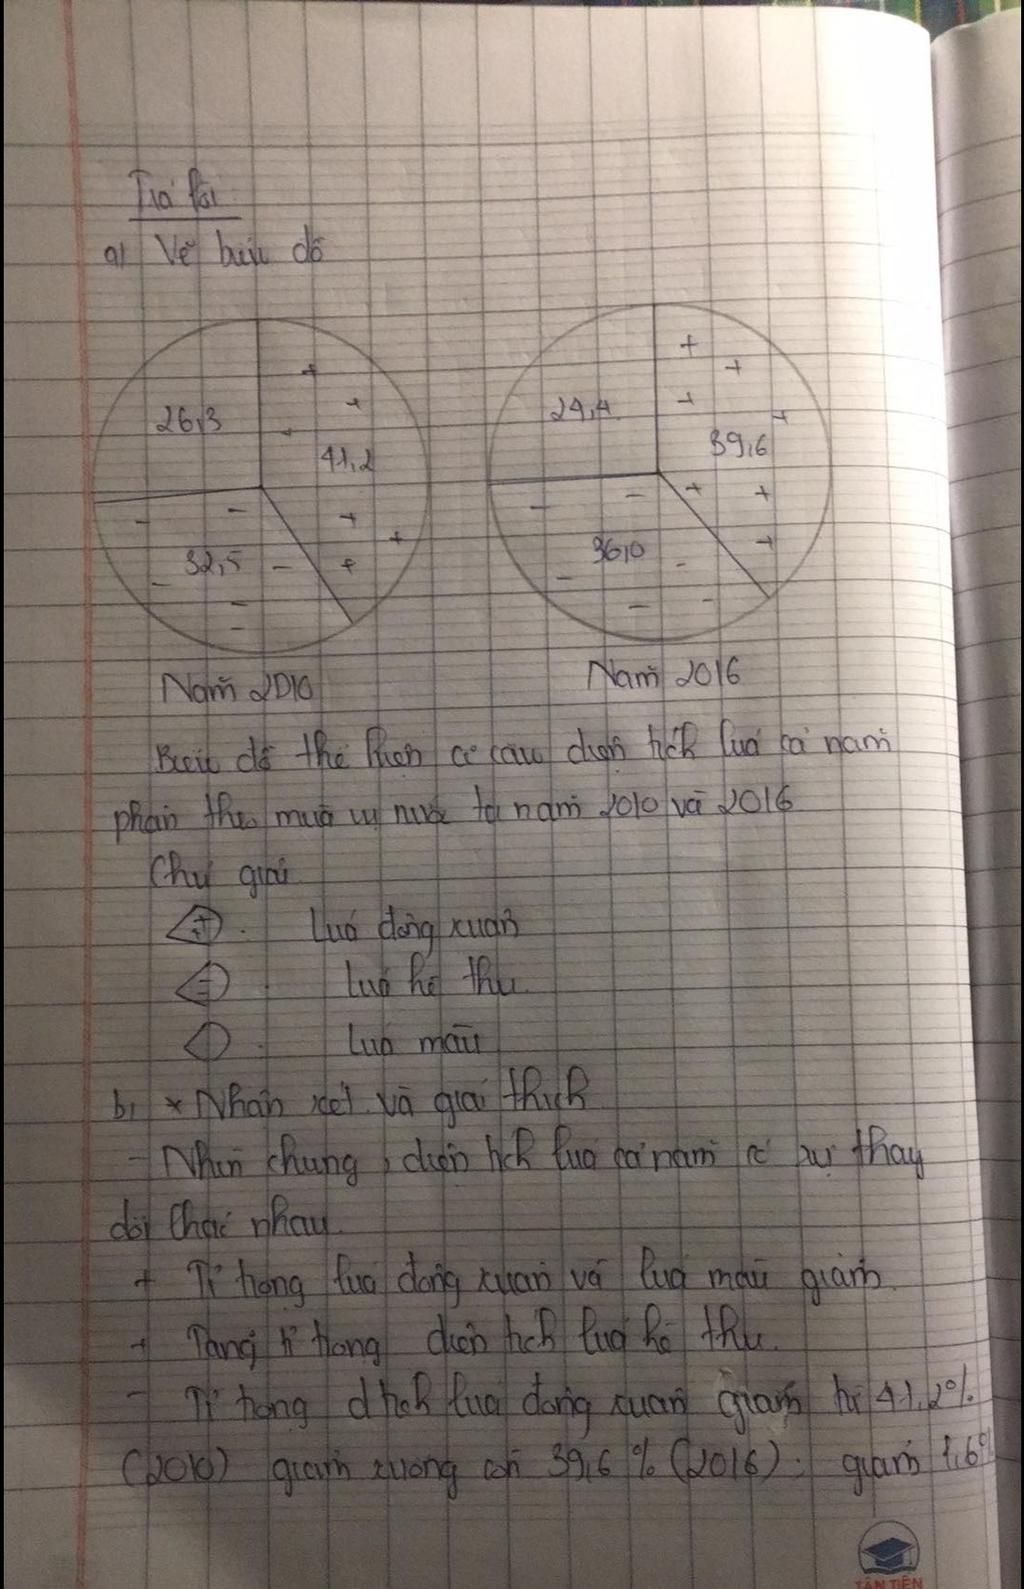 Trả lời
a) Vẽ biểu đồ
26,3
41,2
32,5
24,4
39,6
36,0
Năm 2010
Năm 2016
Biểu đồ thể hiện cơ cấu diện tích lúa cả năm
phân theo mùa vụ nước ta năm 2010 và 2016
Chú giải
+ Lúa đông xuân
- Lúa hè thu
Lúa mùa
b, * Nhận xét và giải thích
- Nhìn chung, diện tích lúa cả năm có sự thay
đổi khác nhau
+ Tỉ trọng lúa đông xuân và lúa mùa giảm
+ Tăng tỉ trọng diện tích lúa hè thu.
- Tỉ trọng d tích lúa đông xuân giảm từ 41,2%
(2010) giảm xuống còn 39,6 % (2016). giảm 1,6%
TÂN TIẾN